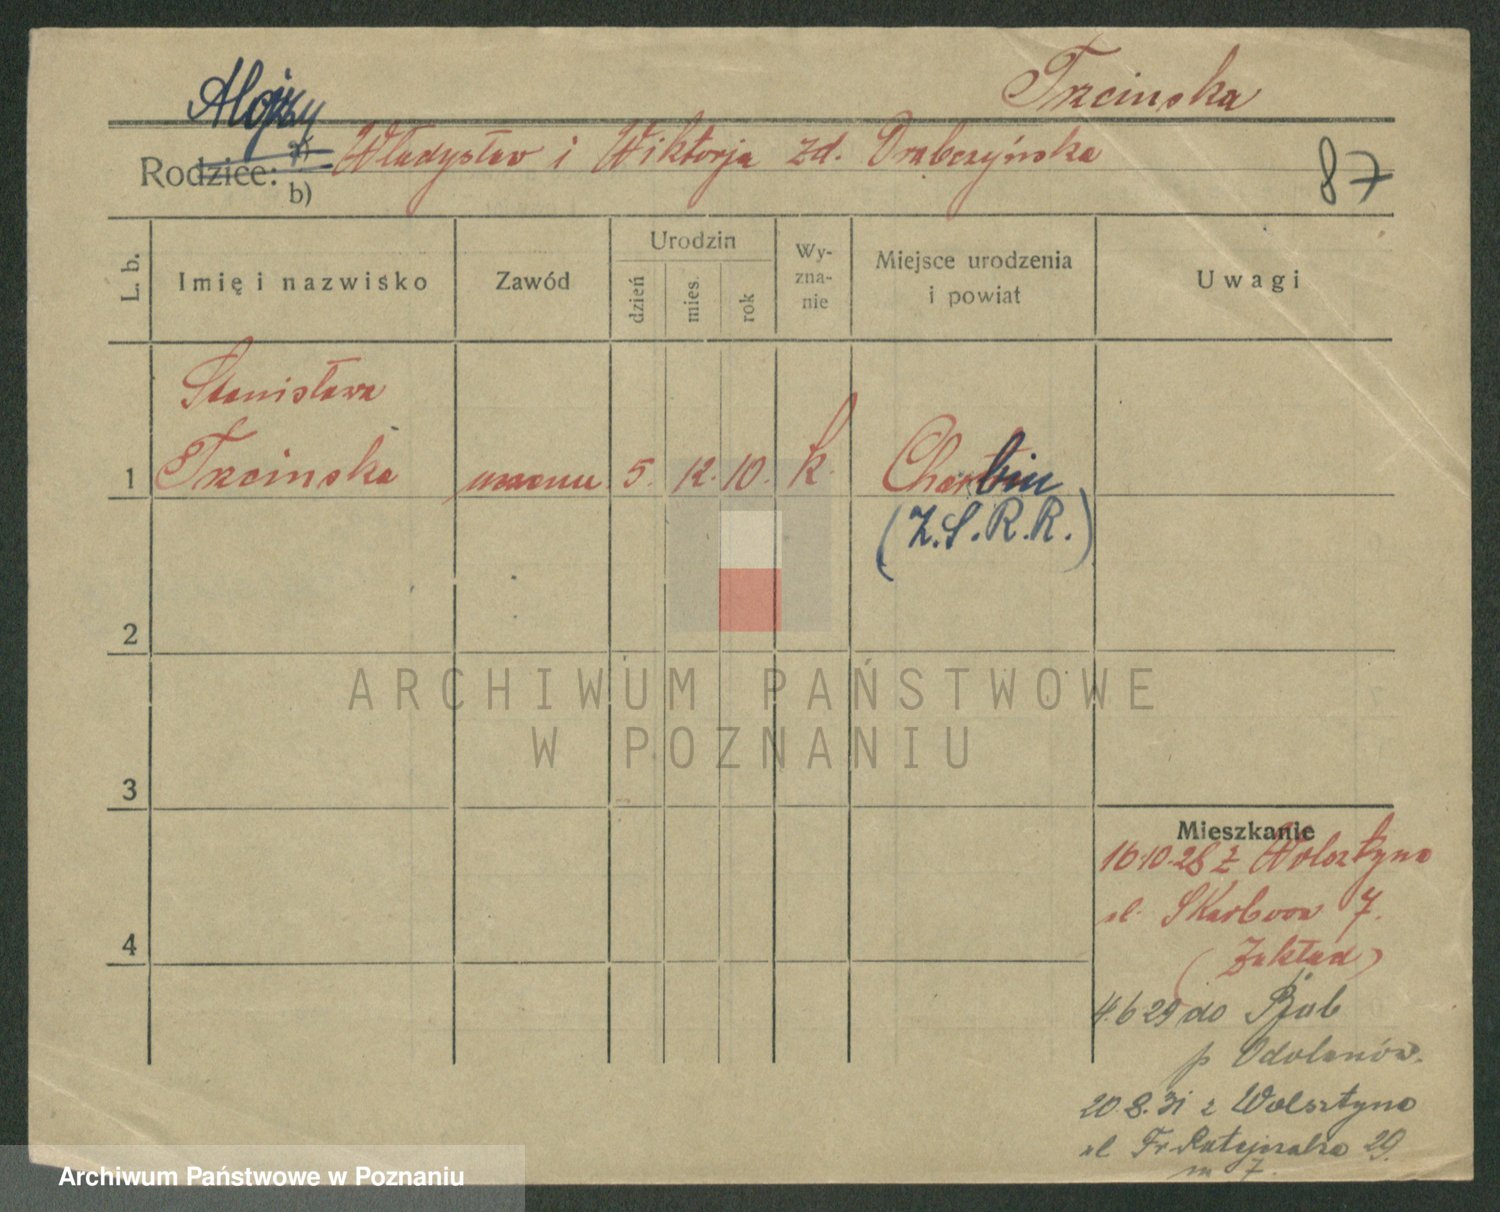 Trzcinska
Alojzy
Rodzice: a) Władysław i Wiktorja zd. Drabczyńska
b)
87
L. b.
Imię i nazwisko
Zawód
Urodzin
dzień
mies.
rok
Wy-
zna-
nie
Miejsce urodzenia
i powiat
Uwagi
Stanisława
1 Trzcinska 5. 12. 10. k. Charbin
(Z.S.R.R.)
2
3
4
Mieszkanie
16.10.28 z Wolsztyna
ul. Skarbowa 7.
(Zakład)
4.6.29 do
p Odolanów.
20.8.31 z Wolsztyna
ul Fr Ratajczaka 29.
m 7.
ARCHIWUM PAŃSTWOWE
W POZNANIU
Archiwum Państwowe w Poznaniu